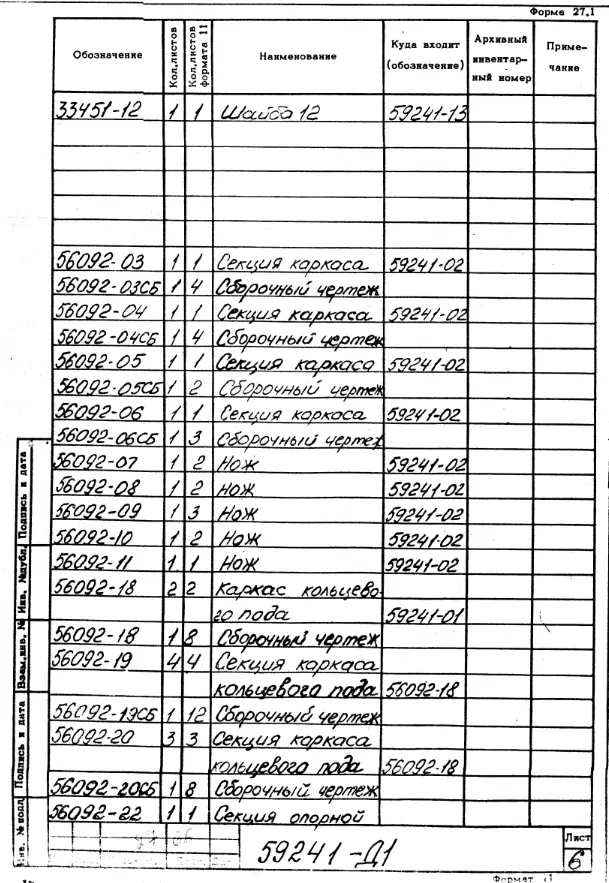 Форма 27.1
Обозначение Кол.листов Кол.листов формата 11 Наименование Куда входит (обозначение) Архивный инвентарный номер Примечание
33451-12 1 1 Шайба 12 59241-13
56092-03 1 1 Секция каркаса 59241-02
56092-03СБ 1 4 Сборочный чертеж
56092-04 1 1 Секция каркаса 59241-02
56092-04СБ 1 4 Сборочный чертеж
56092-05 1 1 Секция каркаса 59241-02
56092-05СБ 1 2 Сборочный чертеж
56092-06 1 1 Секция каркаса 59241-02
56092-06СБ 1 3 Сборочный чертеж
56092-07 1 2 Нож 59241-02
56092-08 1 2 Нож 59241-02
56092-09 1 3 Нож 59241-02
56092-10 1 2 Нож 59241-02
56092-11 1 1 Нож 59241-02
56092-18 2 2 Каркас кольцево-
го пода 59241-01
56092-18 1 8 Сборочный чертеж
56092-19 4 4 Секция каркаса
кольцевого пода 56092-18
56092-19СБ 1 12 Сборочный чертеж
56092-20 3 3 Секция каркаса
кольцевого пода 56092-18
56092-20СБ 1 8 Сборочный чертеж
56092-22 1 1 Секция опорной
59241-Д1
Лист
6
Формат 11
Инв. № подл. Подпись и дата Взам.инв. № Инв. № дубл. Подпись и дата